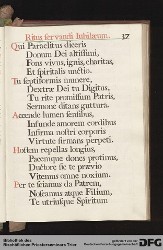 Ritus servandi Jubilæum. 37
Qui Paraclitus diceris
Donum Dei altissimi,
Fons vivus, ignis, charitas,
Et spiritalis unctio.
Tu septiformis munere,
Dextræ Dei tu Digitus,
Tu rite promissum Patris,
Sermone ditans guttura.
Accende lumen sensibus,
Infunde amorem cordibus
Infirma nostri corporis
Virtute firmans perpeti.
Hostem repellas longius,
Pacemque dones protinus,
Ductore sic te prævio
Vitemus omne noxium.
Per te sciamus da Patrem,
Noscamus atque Filium,
Te utriusque Spiritum
Bibliothek des
Bischöflichen Priesterseminars Trier
DFG